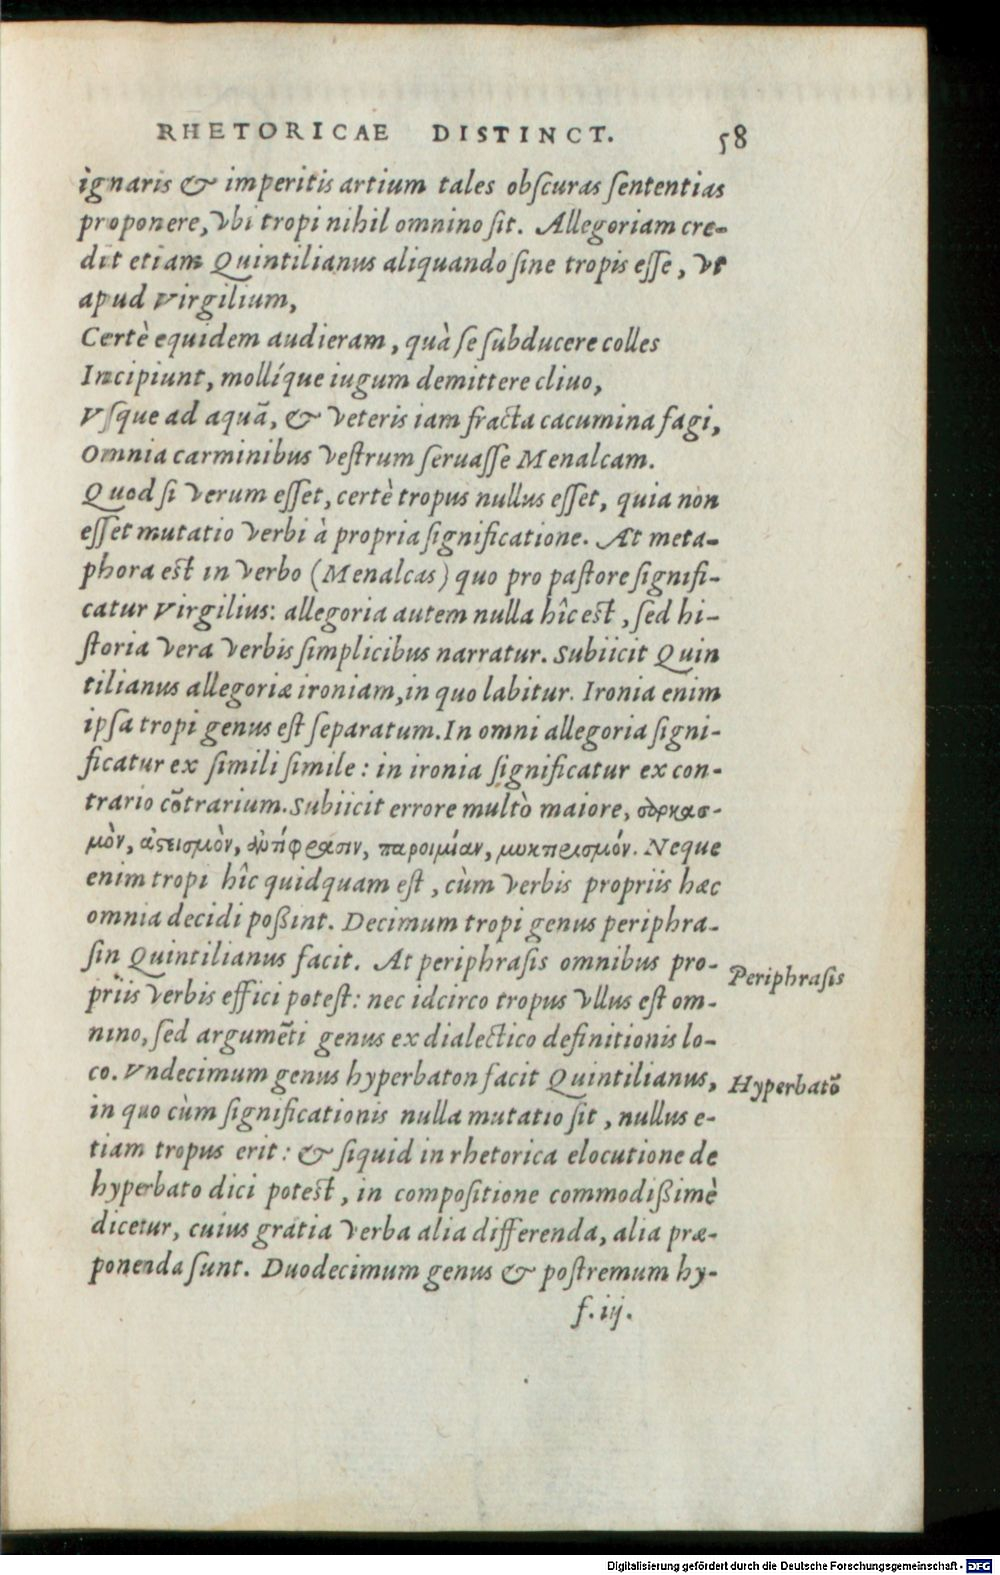 RHETORICAE DISTINCT. 58
ignaris & imperitis artium tales obſcuras ſententias
proponere, vbi tropi nihil omnino ſit. Allegoriam cre-
dit etiam Quintilianus aliquando ſine tropis eſſe, vt
apud Virgilium,
Certè equidem audieram, quà ſe ſubducere colles
Incipiunt, mollíque iugum demittere cliuo,
Vſque ad aquā, & veteris iam fracta cacumina fagi,
Omnia carminibus veſtrum ſeruaſſe Menalcam.
Quod ſi verum eſſet, certè tropus nullus eſſet, quia non
eſſet mutatio verbi à propria ſignificatione. At meta-
phora est in verbo (Menalcas) quo pro paſtore ſignifi-
catur Virgilius: allegoria autem nulla hîc est, ſed hi-
ſtoria vera verbis ſimplicibus narratur. Subiicit Quin
tilianus allegoriæ ironiam, in quo labitur. Ironia enim
ipſa tropi genus eſt ſeparatum. In omni allegoria ſigni-
ficatur ex ſimili ſimile: in ironia ſignificatur ex con-
trario cōtrarium. Subiicit errore multò maiore, σαρκασ-
μὸν, ἀστεισμὸν, ἀντίφρασιν, παροιμίαν, μυκτηρισμόν. Neque
enim tropi hîc quidquam eſt, cùm verbis propriis hæc
omnia decidi poßint. Decimum tropi genus periphra-
ſin Quintilianus facit. At periphraſis omnibus pro-
Periphraſis
priis verbis effici potest: nec idcirco tropus vllus eſt om-
nino, ſed argumēti genus ex dialectico definitionis lo-
co. Vndecimum genus hyperbaton facit Quintilianus,
Hyperbatō
in quo cùm ſignificationis nulla mutatio ſit, nullus e-
tiam tropus erit: & ſiquid in rhetorica elocutione de
hyperbato dici potest, in compoſitione commodißimè
dicetur, cuius gratia verba alia differenda, alia præ-
ponenda ſunt. Duodecimum genus & poſtremum hy-
f. iij.
Digitalisierung gefördert durch die Deutsche Forschungsgemeinschaft - DFG